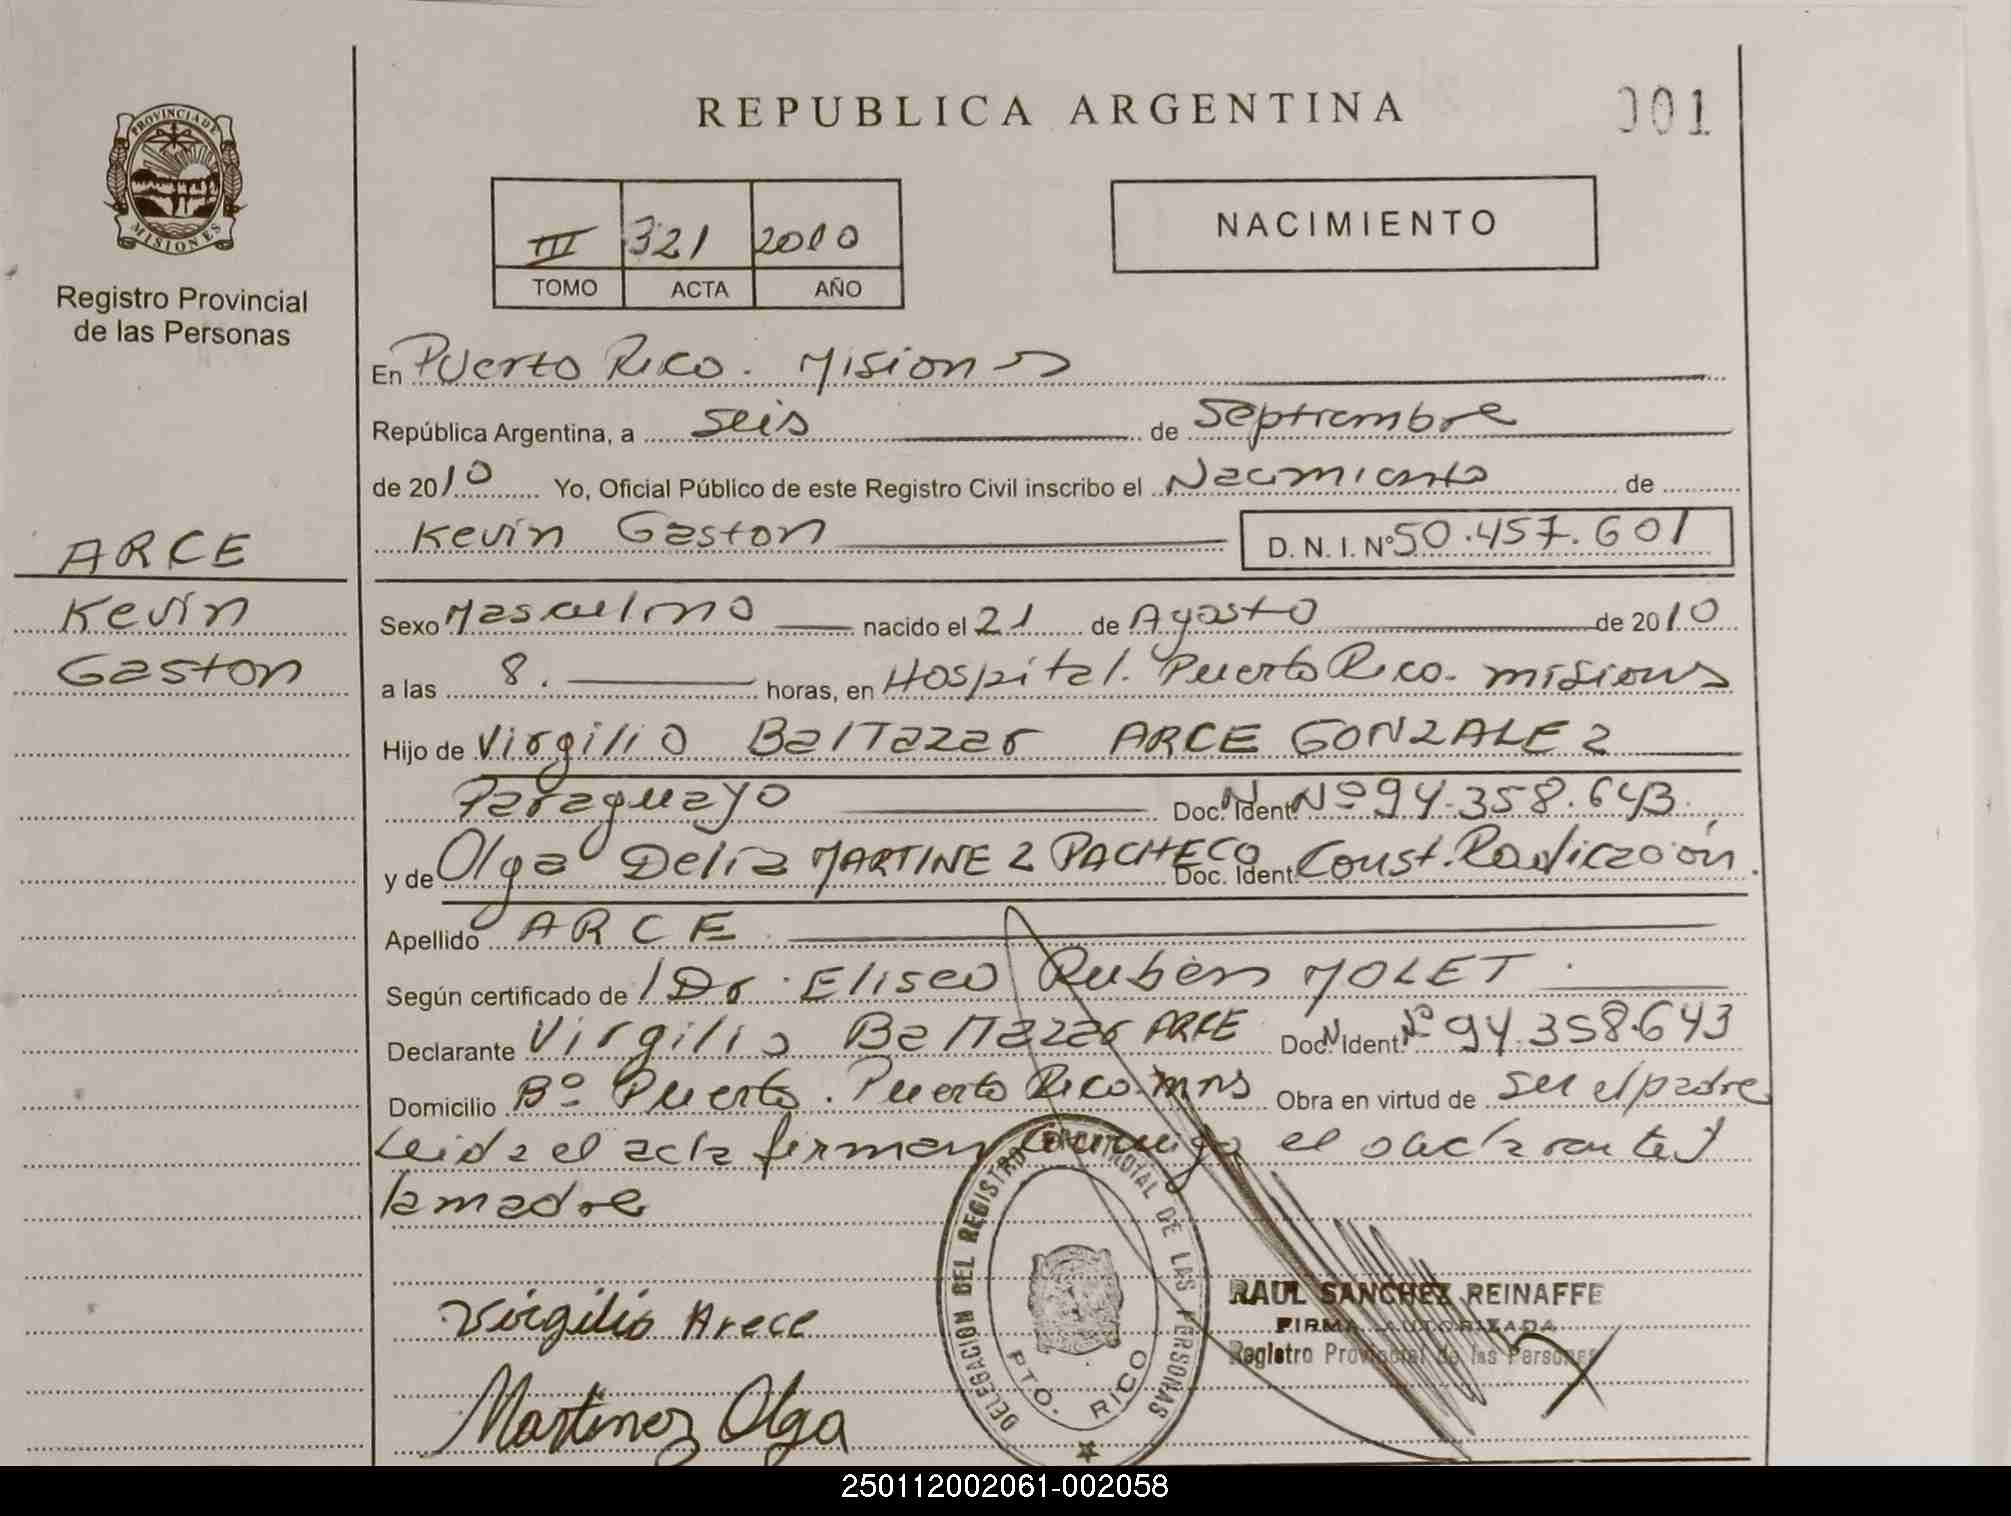 REPUBLICA ARGENTINA
001
PROVINCIA DE
MISIONES
Registro Provincial
de las Personas
III 321 2010
TOMO ACTA AÑO
NACIMIENTO
En Puerto Rico. Misiones
República Argentina, a seis de Septiembre
de 2010 Yo, Oficial Público de este Registro Civil inscribo el Nacimiento de
Kevin Gaston D. N. I. Nº 50.457.601
ARCE
Kevin
Gaston
Sexo Masculino nacido el 21 de Agosto de 2010
a las 8. horas, en Hospital. Puerto Rico. Misiones
Hijo de Virgilio Baltazar ARCE GONZALEZ
Paraguayo Doc. Ident. Nº 94.358.643
y de Olga Delia MARTINEZ PACHECO Doc. Ident. Const. Radicación.
Apellido ARCE
Según certificado de Dr. Eliseo Rubén MOLET
Declarante Virgilio Baltazar ARCE Doc. Ident. Nº 94.358.643
Domicilio Bº Puerto. Puerto Rico. Mns Obra en virtud de ser el padre
Leida el acta firman conmigo el declarante y
la madre
Virgilio Arece
Martinez Olga
DELEGACION DEL REGISTRO PROVINCIAL DE LAS PERSONAS
PTO. RICO
RAUL SANCHEZ REINAFFE
FIRMA AUTORIZADA
Registro Provincial de las Personas
250112002061-002058